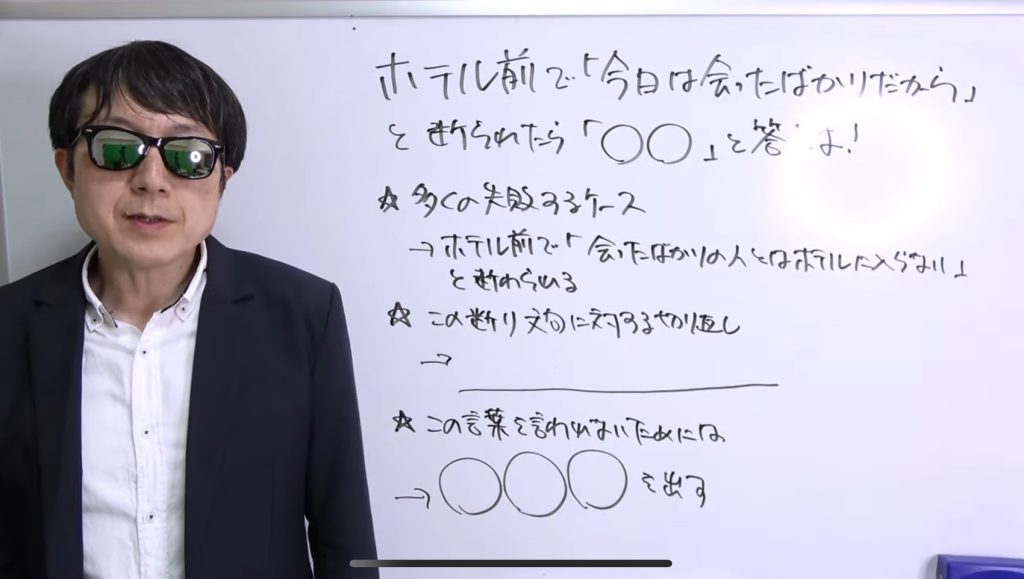 ホテル前で「今日は会ったばかりだから」
と断られたら「〇〇」と答 よ!
☆ 多くの失敗するケース
→ ホテル前で「会ったばかりの人とはホテルに入らない」
と断わられる
☆ この断り文句に対する切り返し
→
☆ この言葉を言われないためには
→ 〇〇〇を出す